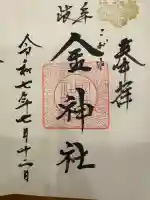 奉拝
こがね
金神社
岐阜
令和七年七月十一日